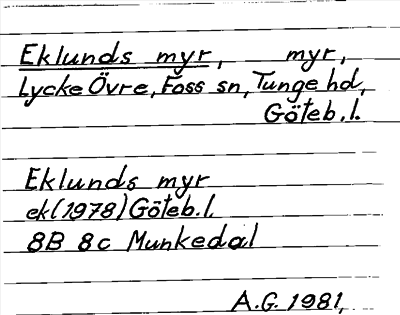 Eklunds myr, myr,
Lycke Övre, Foss sn, Tunge hd,
Göteb.l.
Eklunds myr
ek(1978) Göteb.l.
8B 8c Munkedal
A.G. 1981,